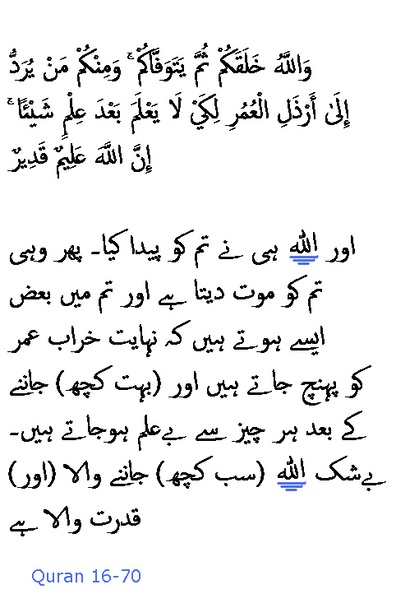 وَاللَّهُ خَلَقَكُمْ ثُمَّ يَتَوَفَّاكُمْ ۚ وَمِنْكُمْ مَنْ يُرَدُّ
إِلَىٰ أَرْذَلِ الْعُمُرِ لِكَيْ لَا يَعْلَمَ بَعْدَ عِلْمٍ شَيْئًا ۚ
إِنَّ اللَّهَ عَلِيمٌ قَدِيرٌ
اور الله ہی نے تم کو پیدا کیا۔ پھر وہی
تم کو موت دیتا ہے اور تم میں بعض
ایسے ہوتے ہیں کہ نہایت خراب عمر
کو پہنچ جاتے ہیں اور (بہت کچھ) جاننے
کے بعد ہر چیز سے بےعلم ہوجاتے ہیں۔
بےشک الله (سب کچھ) جاننے والا (اور)
قدرت والا ہے
Quran 16-70